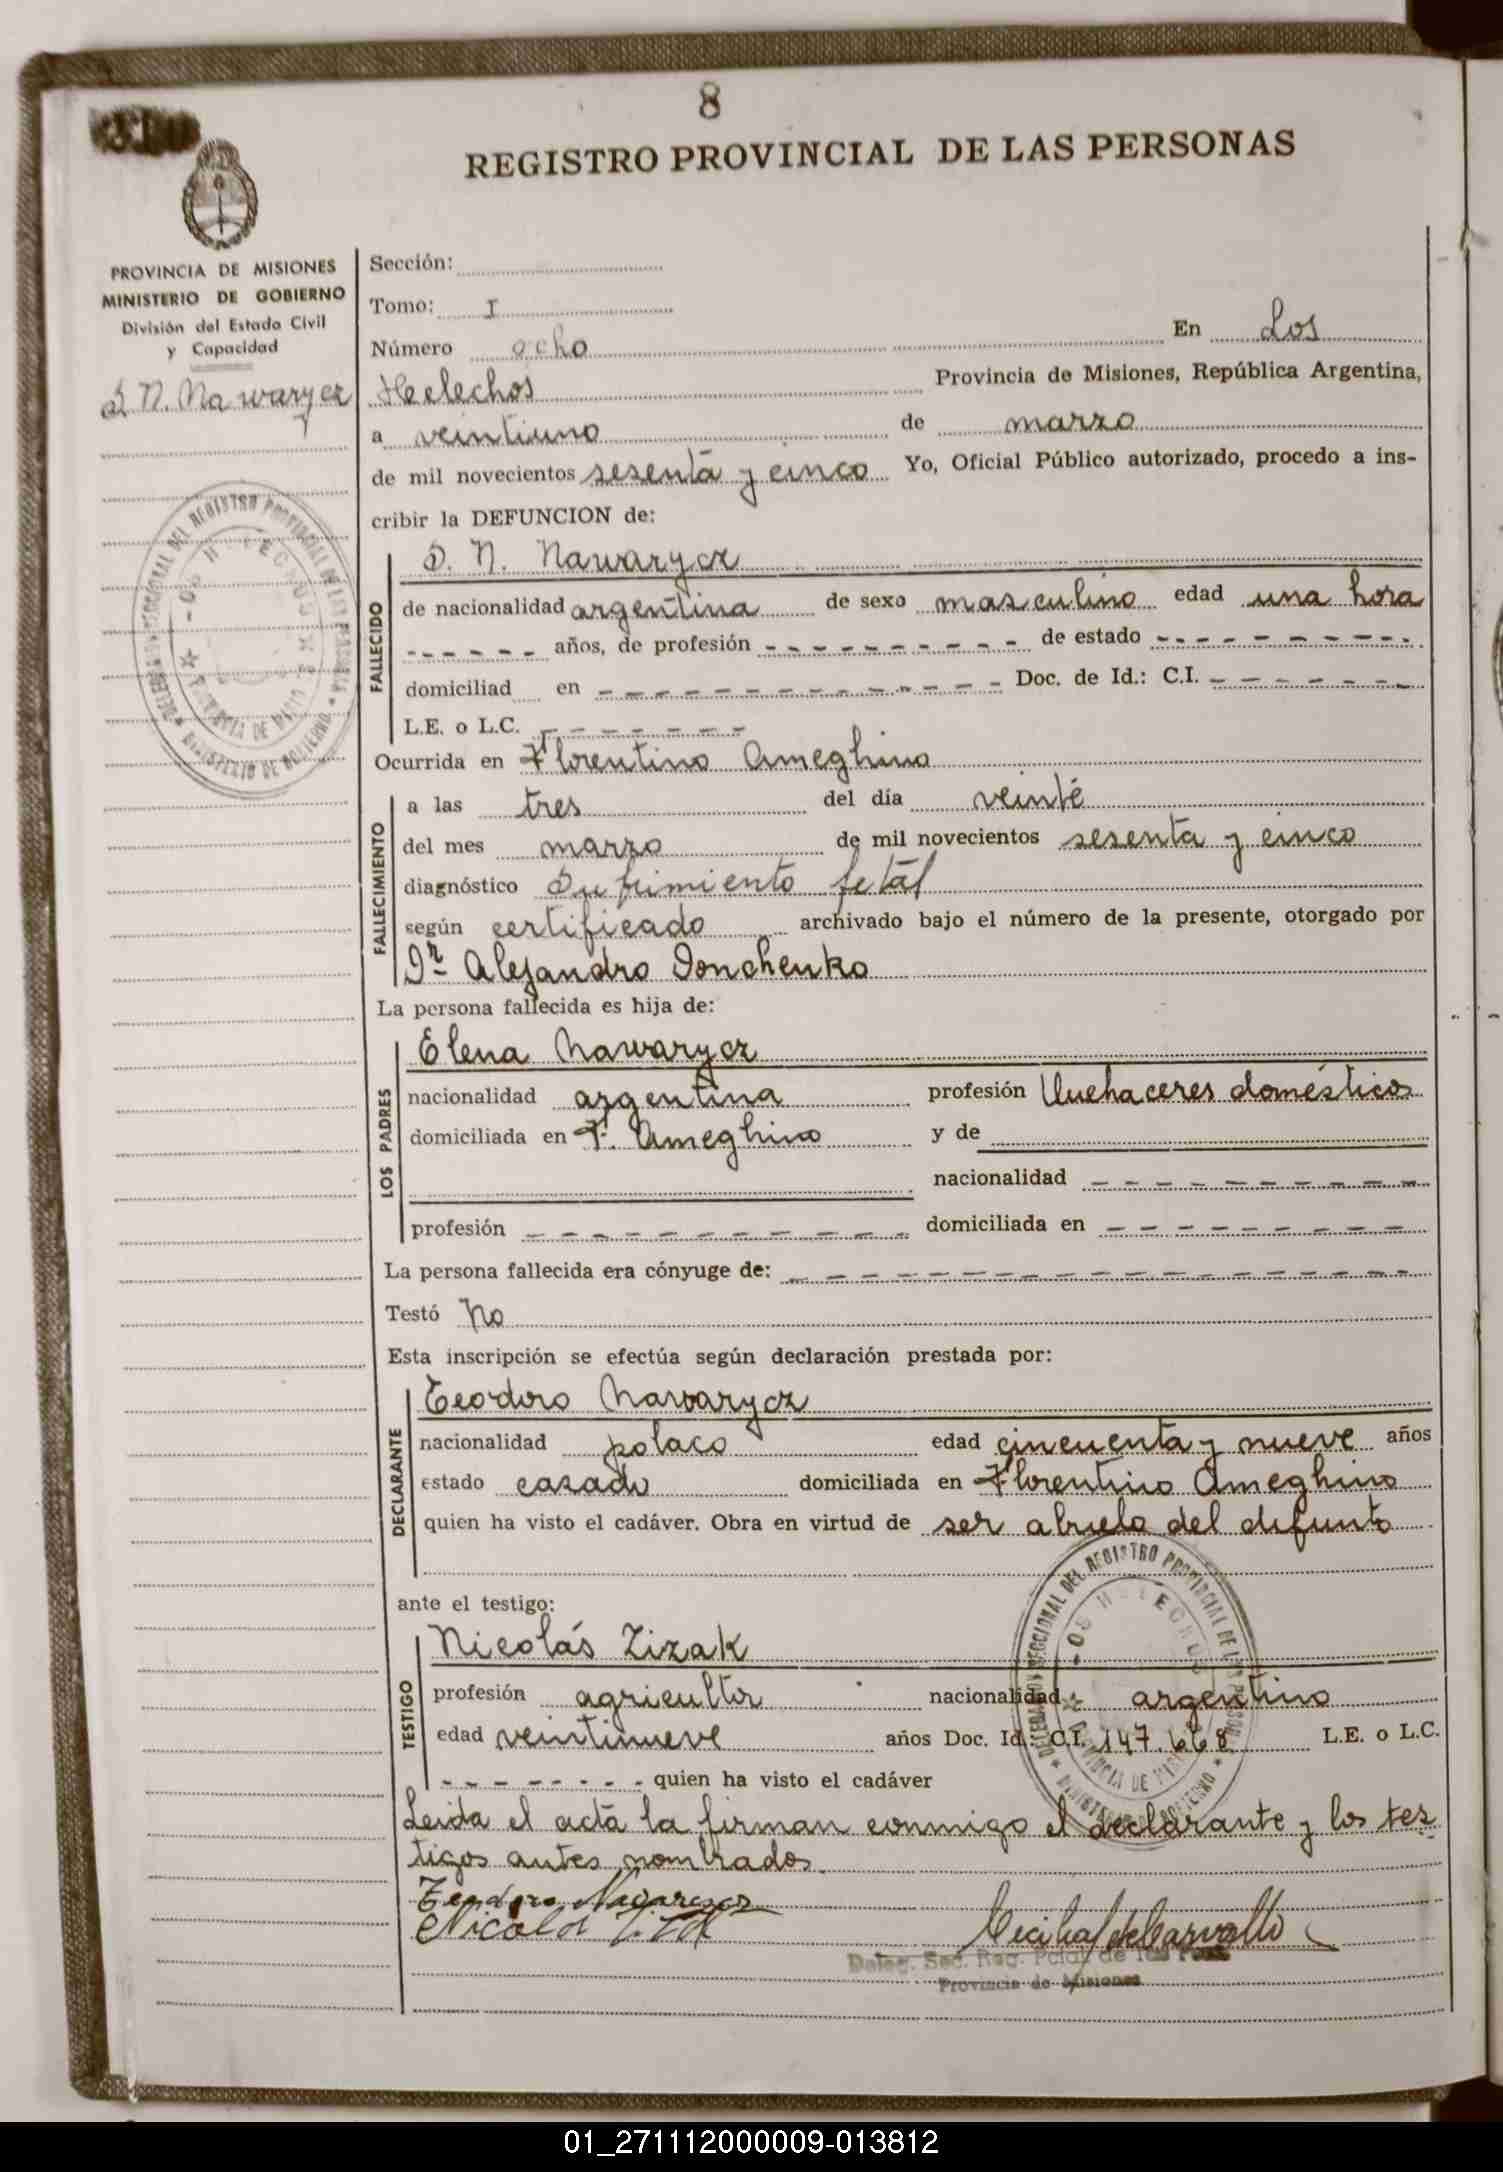 8
REGISTRO PROVINCIAL DE LAS PERSONAS
PROVINCIA DE MISIONES
MINISTERIO DE GOBIERNO
División del Estado Civil
y Capacidad
S. N. Nawarycz
Sección:
Tomo: I
Número ocho En Los
Helechos Provincia de Misiones, República Argentina,
a veintiuno de marzo
de mil novecientos sesenta y cinco Yo, Oficial Público autorizado, procedo a ins-
cribir la DEFUNCION de:
FALLECIDO
S. N. Nawarycz
de nacionalidad argentina de sexo masculino edad una hora
- - - - - años, de profesión - - - - - - - - de estado - - - - - - - -
domiciliad en - - - - - - - - - - - - Doc. de Id.: C.I. - - - - - -
L.E. o L.C. - - - - - - -
Ocurrida en Florentino Ameghino
FALLECIMIENTO
a las tres del día veinte
del mes marzo de mil novecientos sesenta y cinco
diagnóstico Sufrimiento fetal
según certificado archivado bajo el número de la presente, otorgado por
Dr. Alejandro Donchenko
La persona fallecida es hija de:
LOS PADRES
Elena Nawarycz
nacionalidad argentina profesión Quehaceres domésticos
domiciliada en F. Ameghino y de
nacionalidad - - - - - - - - - -
profesión - - - - - - - - - - - domiciliada en - - - - - - - - -
La persona fallecida era cónyuge de: - - - - - - - - - - - - - - - - - -
Testó No
Esta inscripción se efectúa según declaración prestada por:
DECLARANTE
Teodoro Nawarycz
nacionalidad polaco edad cincuenta y nueve años
estado casado domiciliada en Florentino Ameghino
quien ha visto el cadáver. Obra en virtud de ser abuelo del difunto
ante el testigo:
TESTIGO
Nicolás Zizak
profesión agricultor nacionalidad argentino
edad veintinueve años Doc. Id.: C.I. 147.668 L.E. o L.C.
- - - - - - - - quien ha visto el cadáver
Leída el acta la firman conmigo el declarante y los tes-
tigos antes nombrados.
Teodoro
Nicolas
Deleg. Sec. Reg. Pcial de las Pers.
Provincia de Misiones
DELEGACION SECCIONAL DEL REGISTRO PROVINCIAL DE LAS PERSONAS
LOS HELECHOS
PROVINCIA DE MISIONES
MINISTERIO DE GOBIERNO
01_271112000009-013812